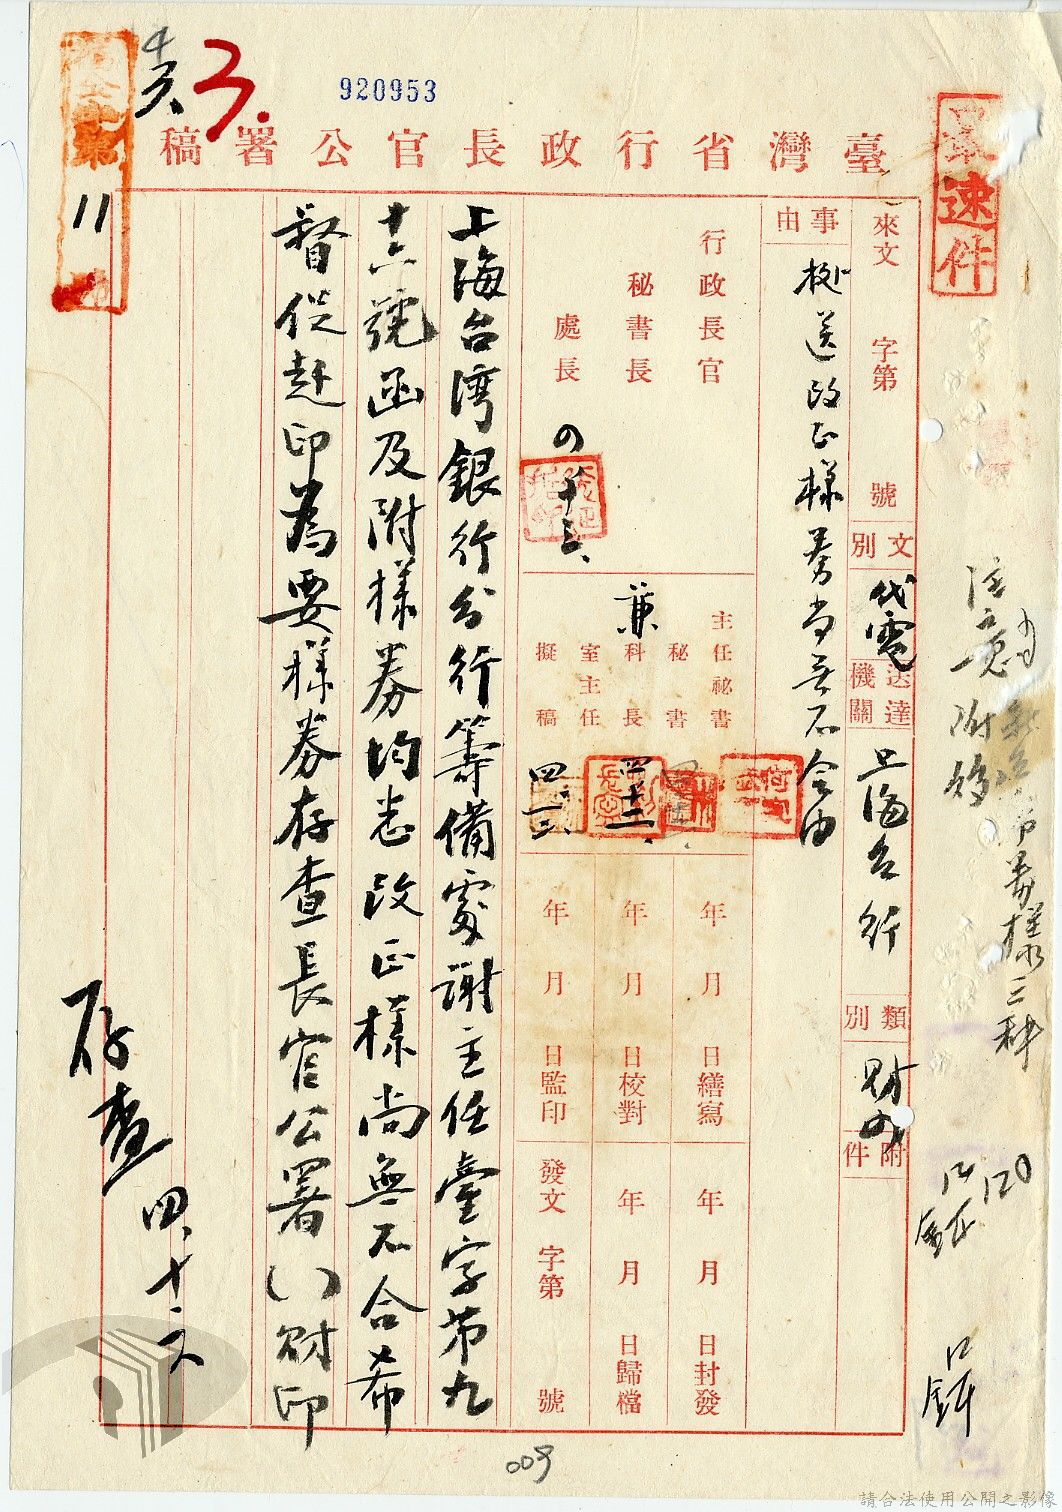 920953
3.
臺灣省行政長官公署稿
最速件
11
來文 字第 號
文別
代電
送達機關
上海台行
類別
財
附件
事由
送改正樣券尚無不合由
行政長官
秘書長
處長
四、十三、
主任秘書
秘書
科長
兼
室主任
擬稿
四、十二、
年 月 日繕寫
年 月 日校對
年 月 日監印
年 月 日封發
年 月 日歸檔
發文 字第 號
上海台湾銀行分行籌備處謝主任臺字第九
十六號函及附樣券均悉改正樣尚無不合希
督促赶印為要樣券存查長官公署( )財印
注意附件
券樣三种
存查
四、十、六
009
請合法使用公開之影像